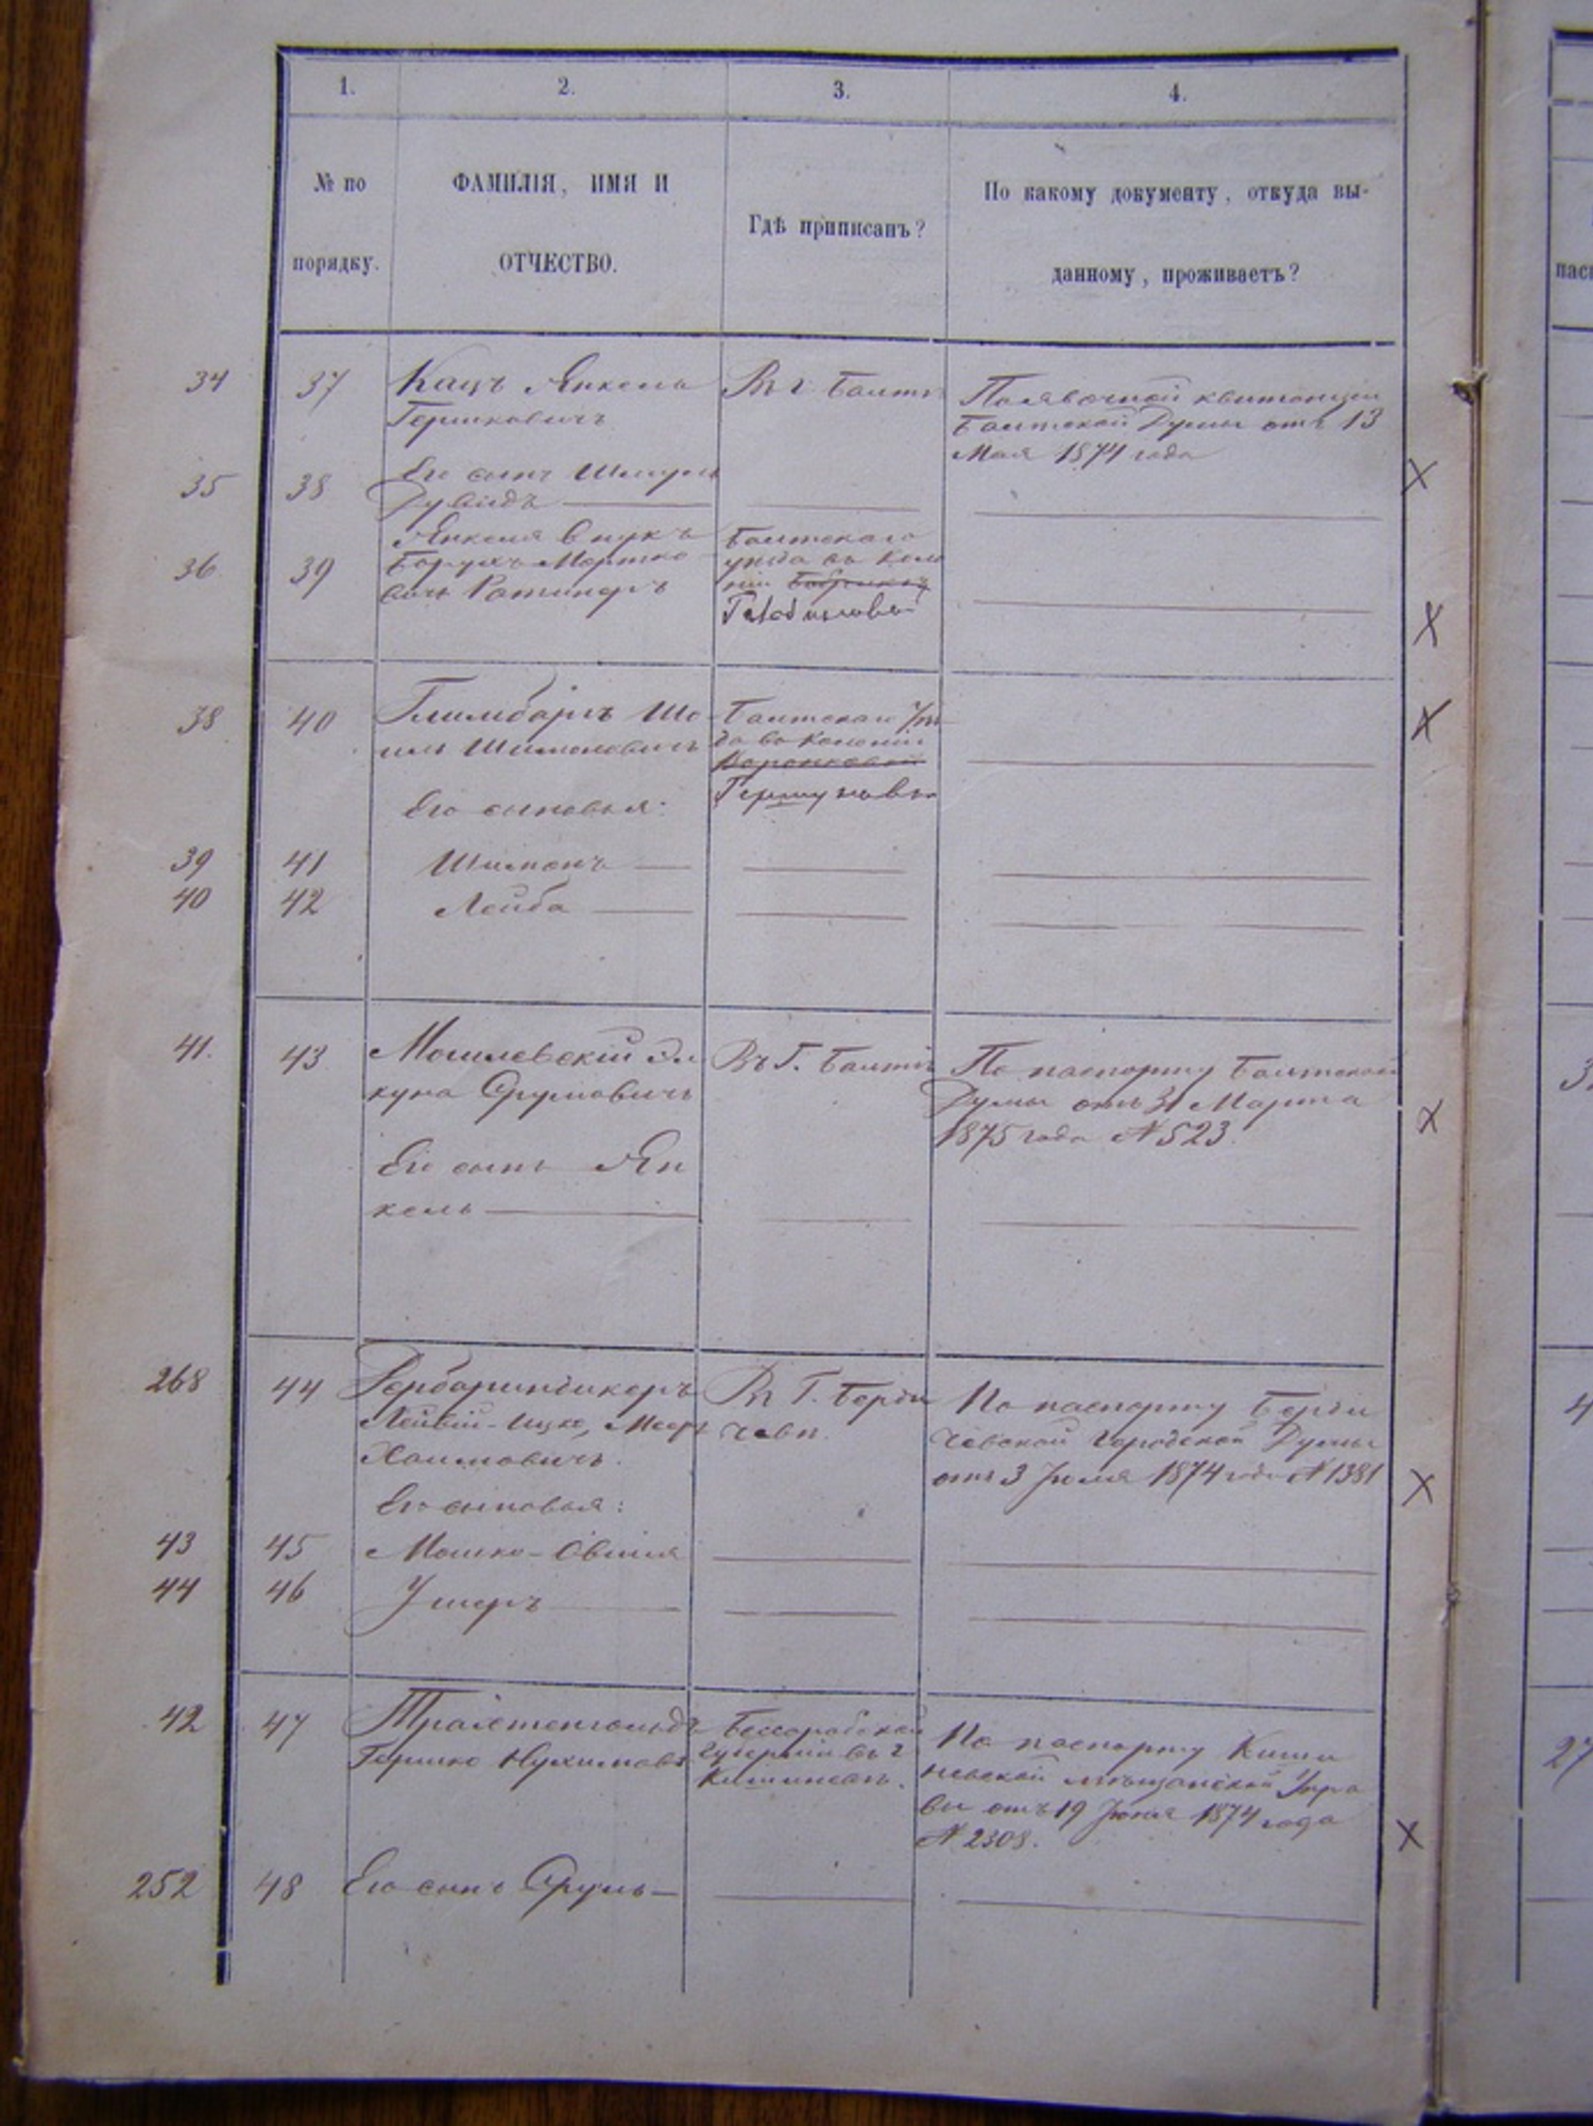 1. 2. 3. 4.
№ по
порядку.
ФАМИЛІЯ, ИМЯ И
ОТЧЕСТВО.
Гдѣ приписанъ?
По какому документу, откуда вы-
данному, проживаетъ?
34 37 Кацъ Янкель
Гершковичъ
Въ г Балтѣ
Полявочной квитанціи
Балтской Думы отъ 13
Мая 1874 года
35 38 Его сынъ Шмуль
Дувидъ
36 39 Янкеля внукъ
Борухъ Мортко
вичъ Ратинеръ
Балтскаго
уѣзда въ Коло
ніи
38 40 Глимбаргъ Шо
иль Шимоновичъ
Балтскаго Уѣз
да въ Колоніи
Гершуновка
Его сыновья:
39 41 Шимонъ
40 42 Лейба
41. 43 Могилевскій Эл
куна Срулевичъ
Въ Г. Балтѣ
По паспорту Балтской
Думы отъ 31 Марта
1875 года № 523.
Его сынъ Ян
кель
268 44 Фербариндикеръ
Лейвій-Ицко, Меер
Хаимовичъ.
Въ Г. Берди
чевѣ.
По паспорту Берди
чевской городской Думы
отъ 3 Іюля 1874 года № 1381
Его сыновья:
43 45 Мошко-Овшія
44 46 Ушеръ
42 47
Гершко Нухимовъ
Бессарабской
губерніи въ г
Кишиневѣ.
По паспорту Киши
невской мѣщанской Упра
вы отъ 19 Іюня 1874 года
№ 2308.
252 48 Его сынъ Сруль